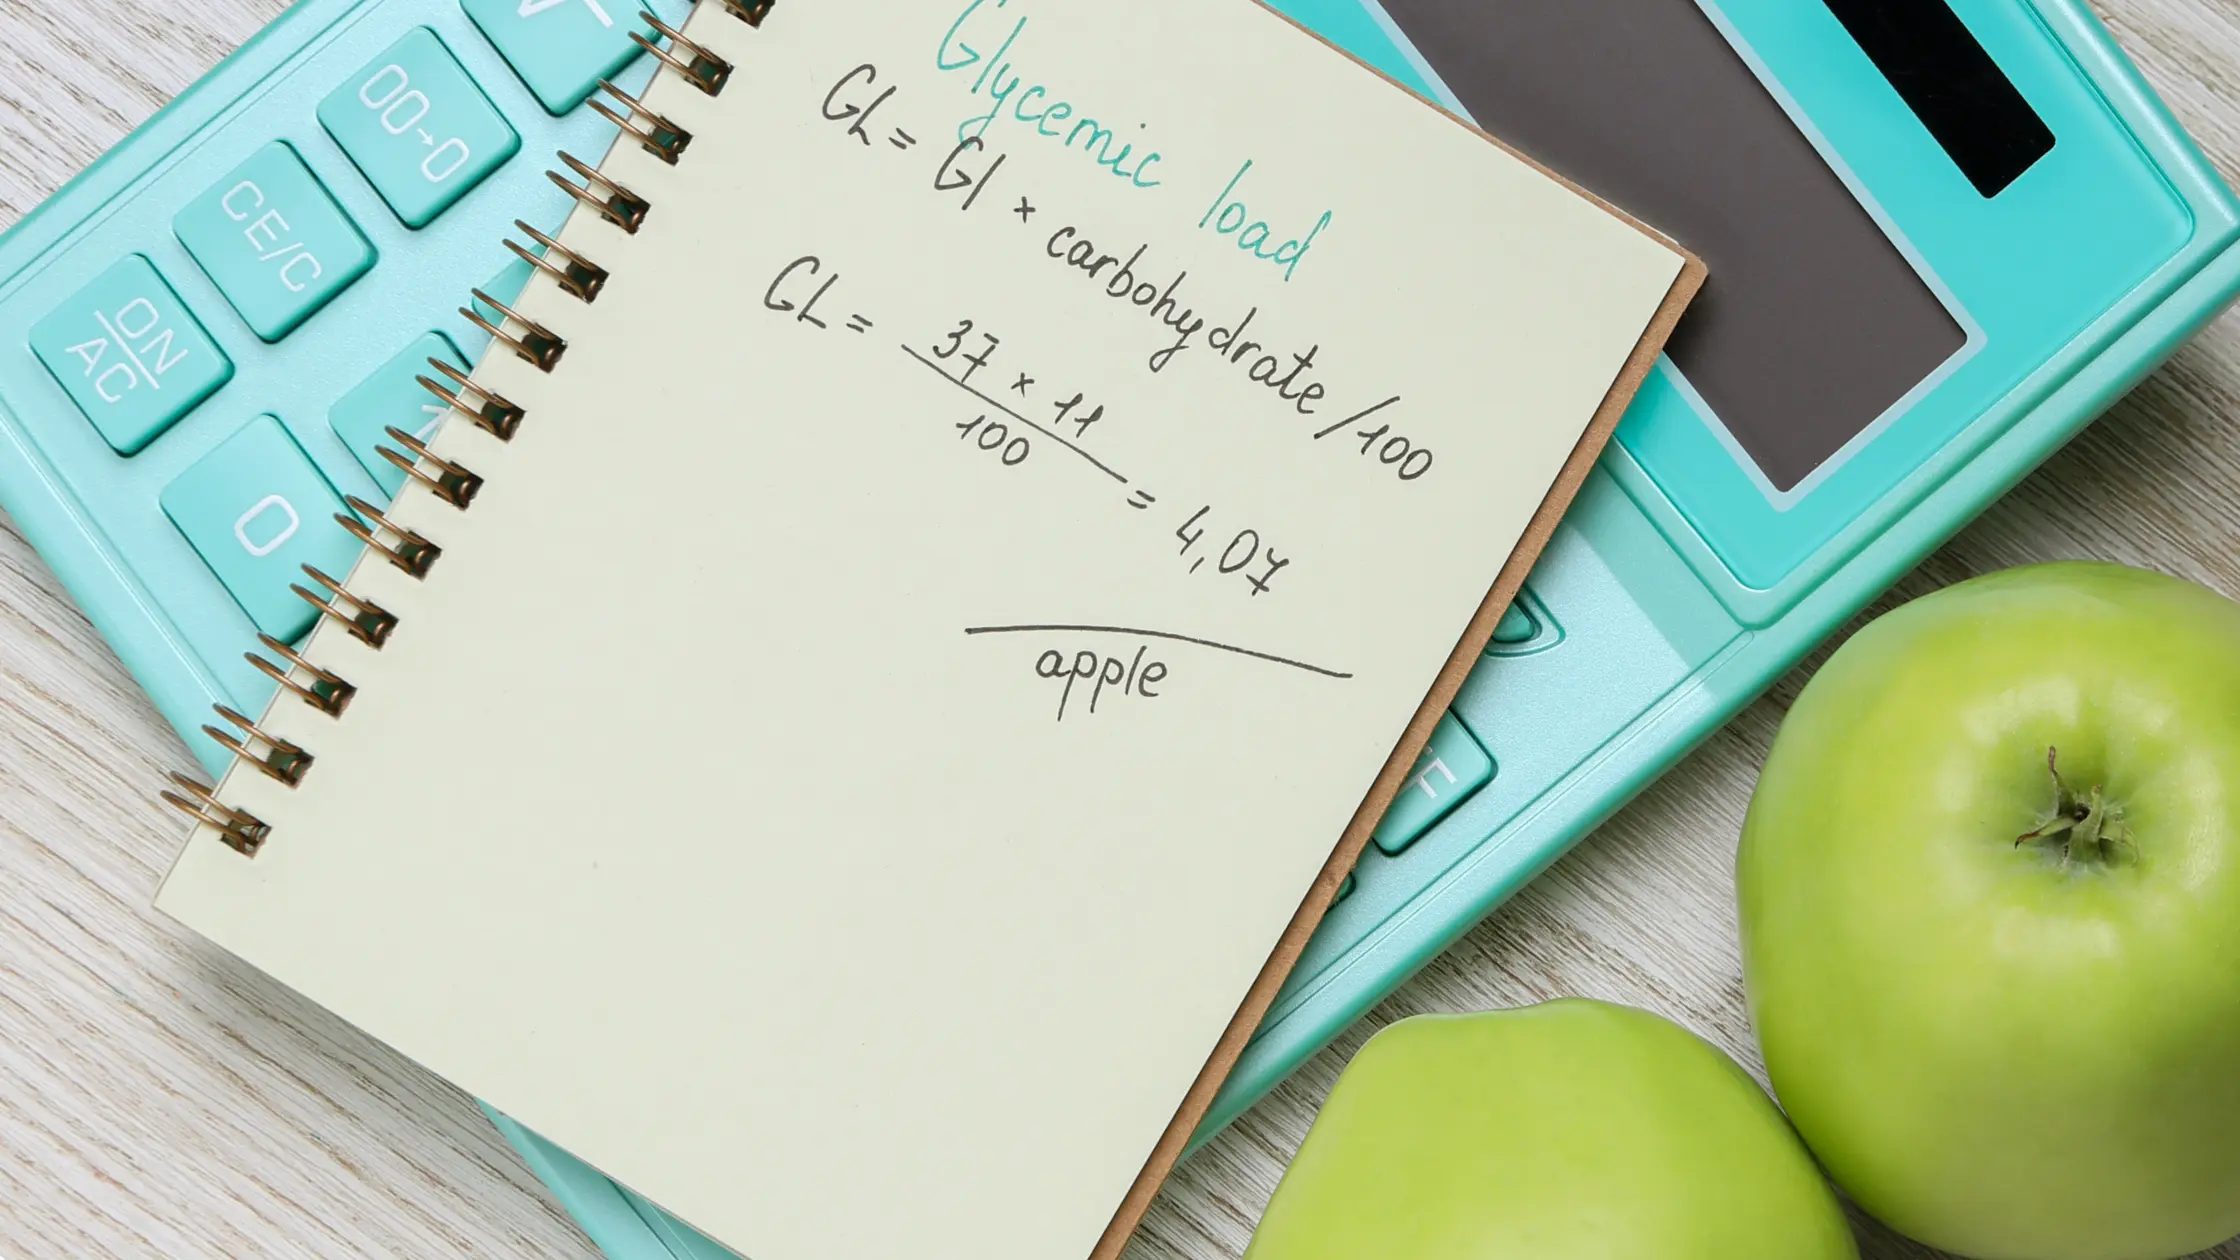 Glycemic load
GL = GI × carbohydrate/100
GL = 37 × 11
100
= 4,07
apple
√
00→0
CE/C
ON
AC
0